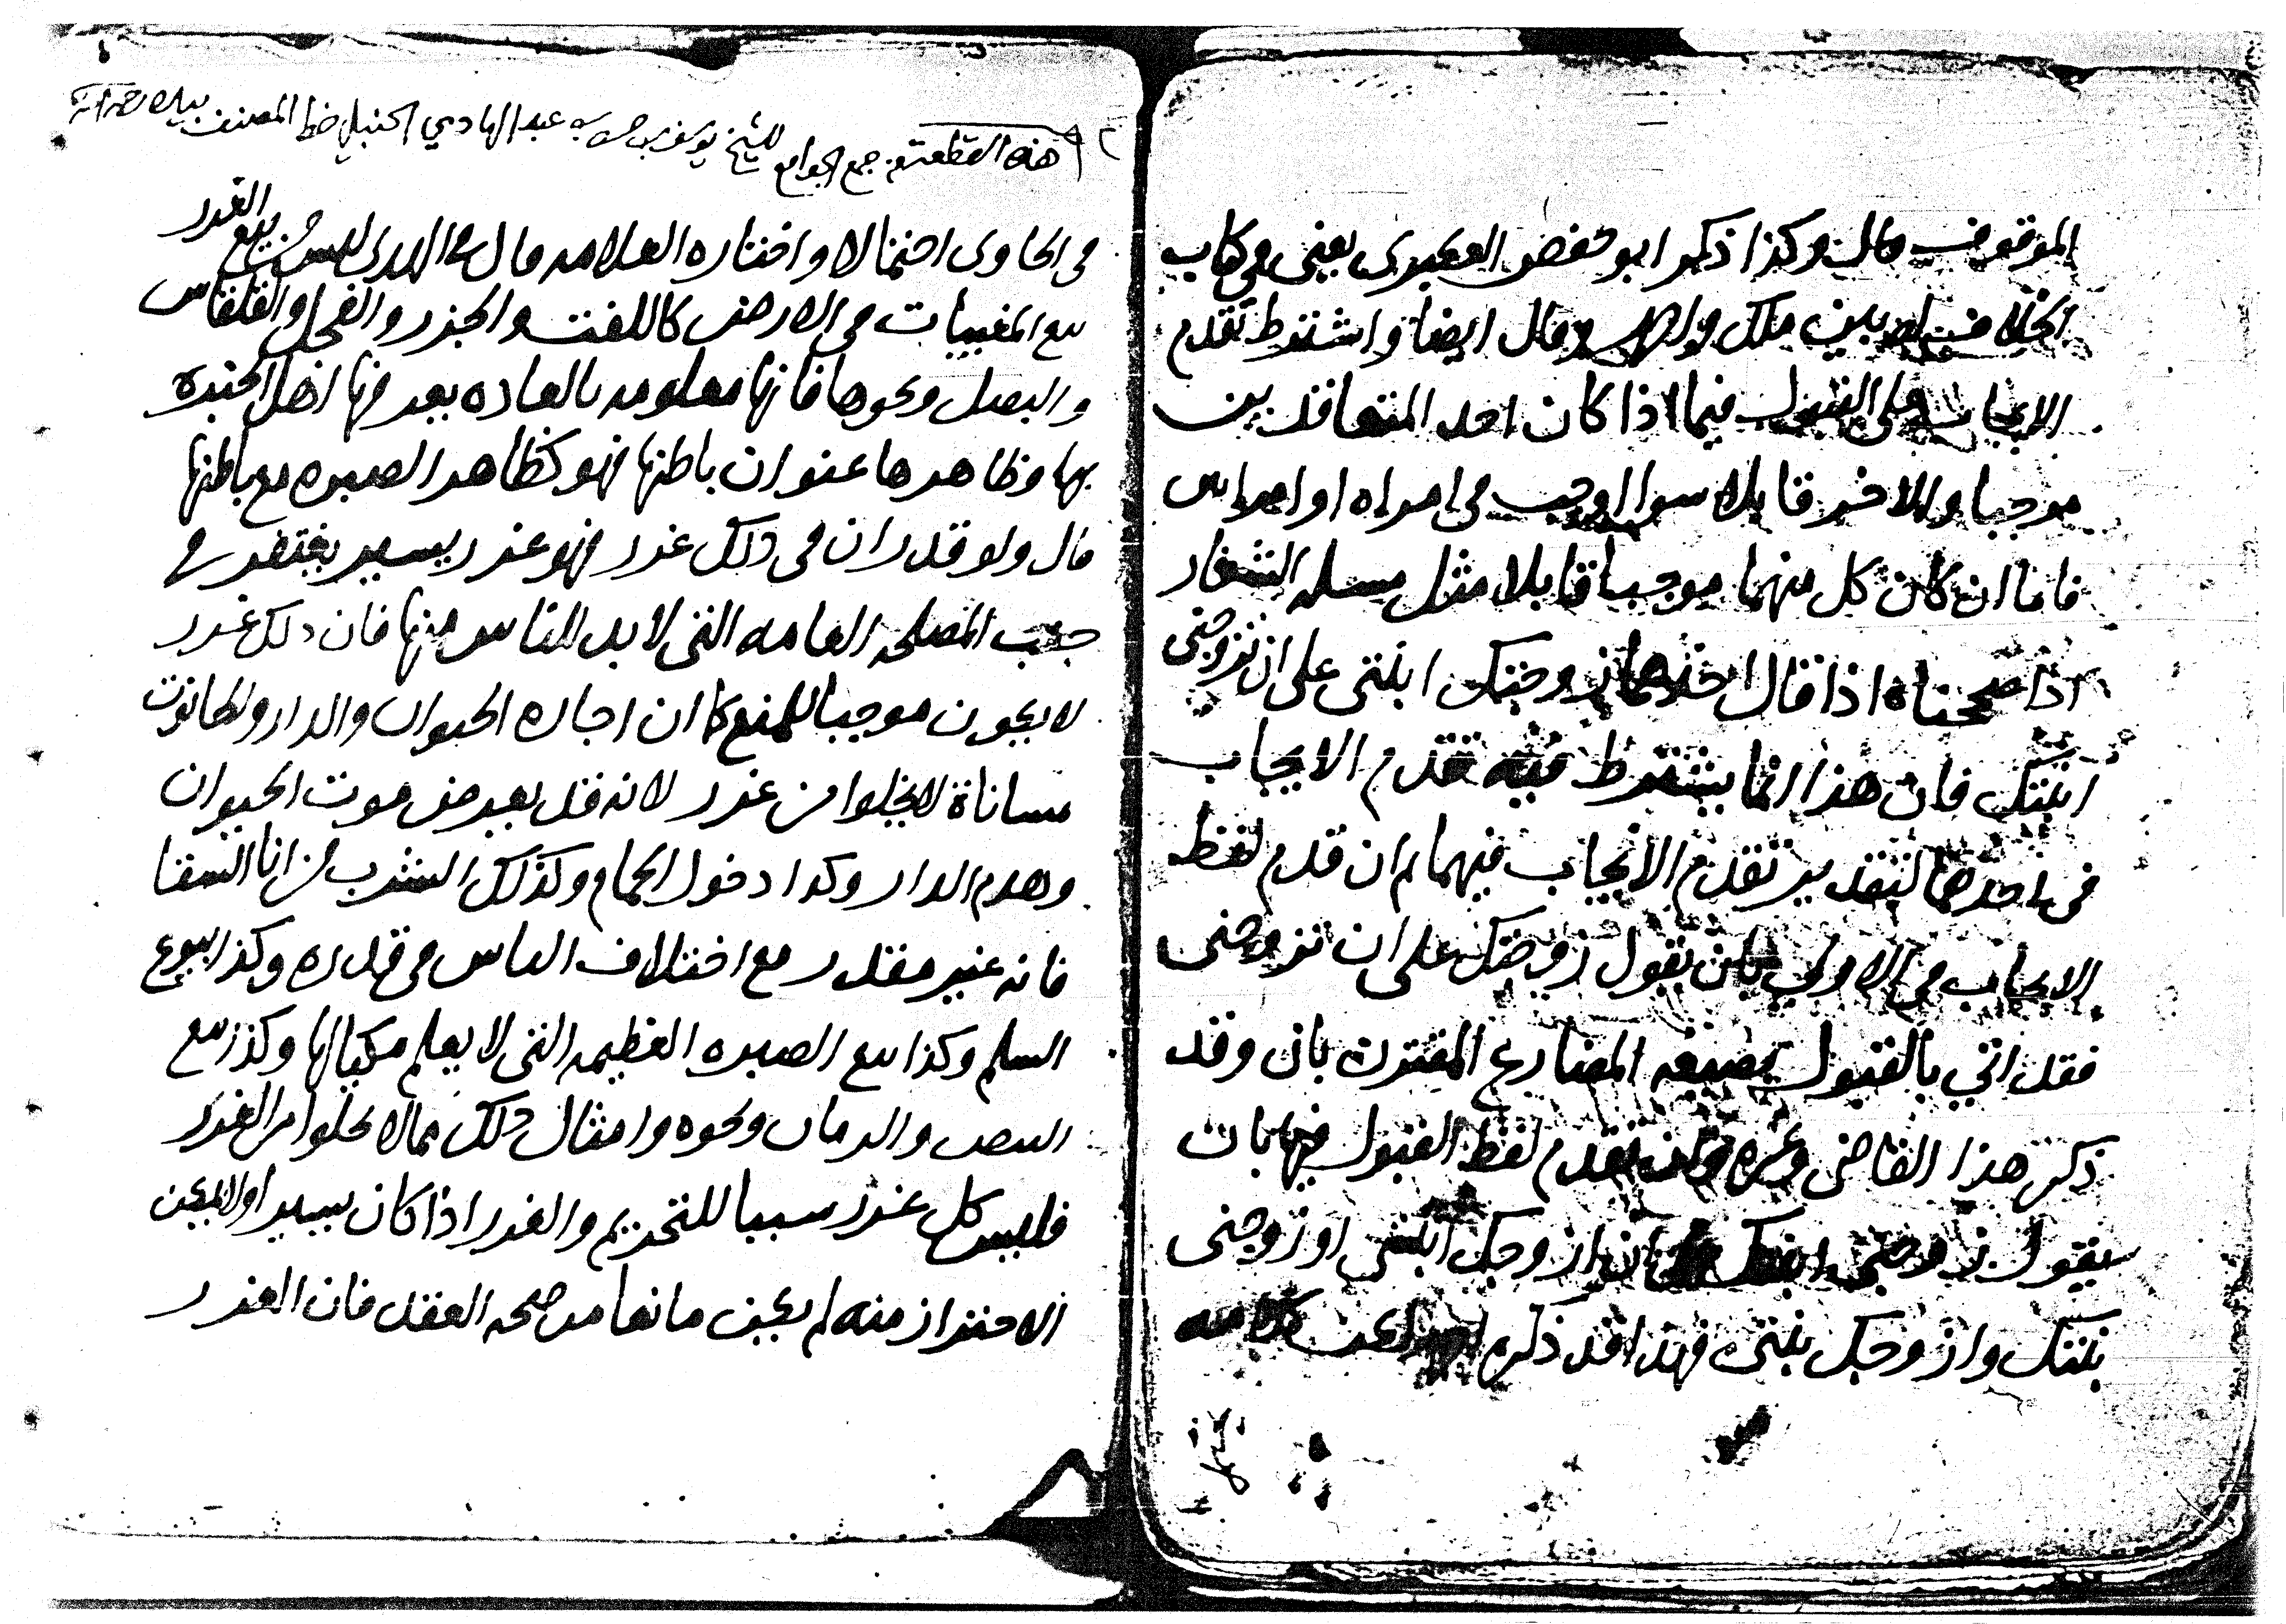 الموقوف قال وكذا ذكر ابو حفص العكبري يعني في كتاب
الخلاف له بين ملك وقال ايضا واشترط تقدم
الايجاب على القبول فيما اذا كان احد المتعاقدين
موجبا والاخر قابلا سوا اوجب في امراه او امراس
فاما ان كان كل منهما موجبا قابلا مثل مسله الشغار
اذا صححناه اذا قال احدهما زوجتك ابنتي على ان تزوجني
ابنتك فان هذا انما يشترط فيه تقدم الايجاب
في احدهما لتقدير تقدم الايجاب فيهما لم ان قدم لفظ
الايجاب في الاولي بان يقول زوجتك على ان تزوجني
فقد اتي بالقبول بصيغه المضارع المقترن بان وقد
ذكر هذا القاضي وغيره تقدم لفظ القبول فيها بان
يقول زوجني ابنتك ان ازوجك ابنتي او زوجني
بنتك وازوجك بنتي فهذا قد ذكره كلامه
هذه القطعة من جمع الجوامع للشيخ يوسف بن حسن بن عبد الهادي الحنبلي خط المصنف بيده رحمه الله
في الحاوى احتمالا واختاره العلامه قال في الهدي ليس من بيع الغرر
بيع المغيبات في الارض كاللفت والجزر والفجل والقلقاس
والبصل ونحوها فانها معلومه بالعاده يعرفها اهل الخبره
بها وظاهرها عنوان باطنها فهو كظاهر الصبره مع باطنها
قال ولو قدر ان في ذلك غرر فهو غرر يسير يغتفر في
جنب المصلحه العامه التي لا بد للناس منها فان ذلك غرر
لا يكون موجبا للمنع كما ان اجاره الحيوان والدار والحانوت
مساناة لا يخلوا من غرر لانه قد يعرض موت الحيوان
وهدم الدار وكذا دخول الحمام وكذلك الشرب من انا السقا
فانه غير مقدر مع اختلاف الناس في قدره وكذا بيوع
السلم وكذا بيع الصبره العظيمه التي لا يعلم مكيالها وكذا بيع
البيض والرمان ونحوه وامثال ذلك مما لا يخلوا من الغرر
فليس كل غرر سببا للتحريم والغرر اذا كان يسيرا او لا يمكن
الاحتراز منه لم يكن مانعا من صحه العقد فان الغرر